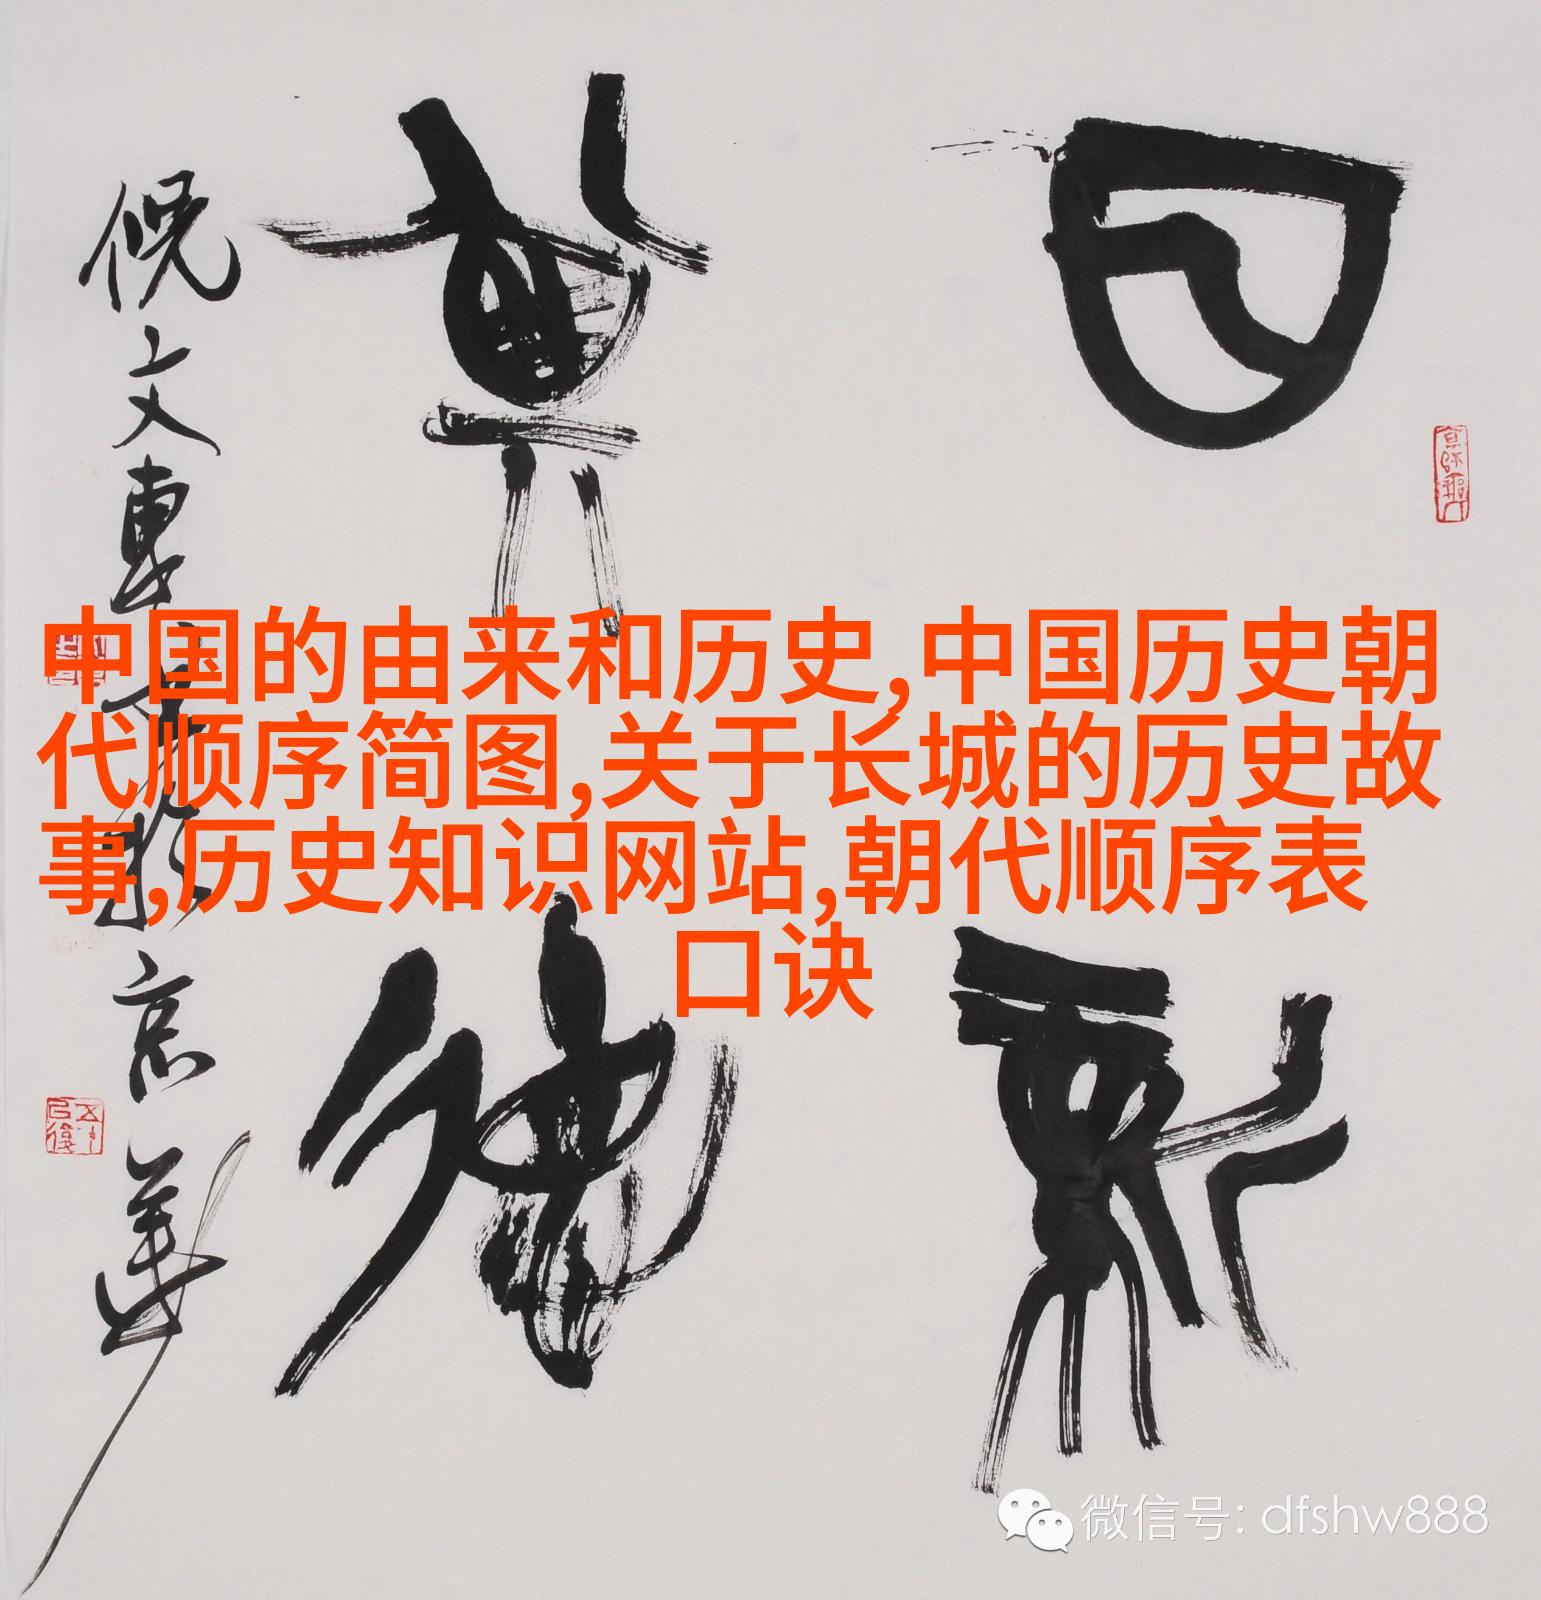 日新
其德
倪文東
京華
中国的由来和历史,中国历史朝
代顺序简图,关于长城的历史故
事,历史知识网站,朝代顺序表
口诀
微信号: dfshw888